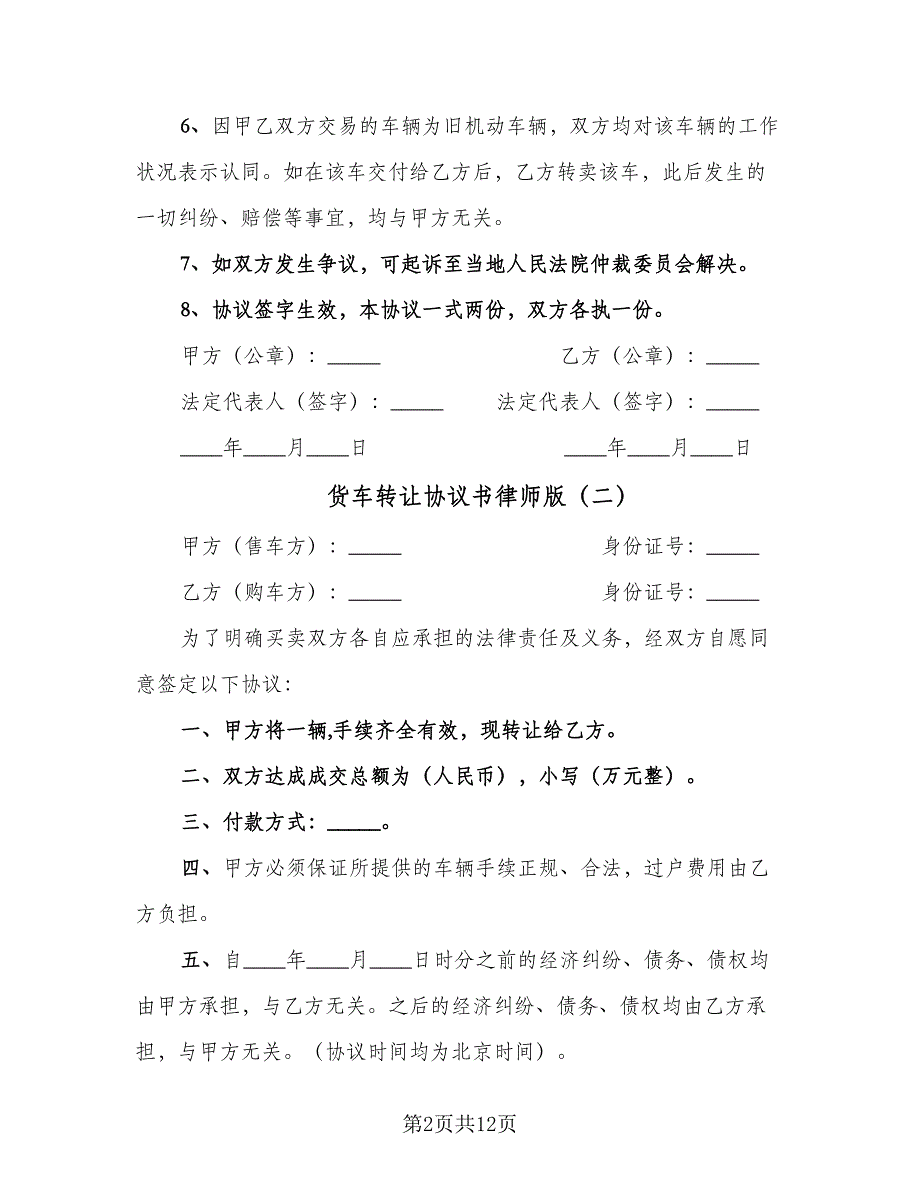 6、因甲乙双方交易的车辆为旧机动车辆，双方均对该车辆的工作
状况表示认同。如在该车交付给乙方后，乙方转卖该车，此后发生的
一切纠纷、赔偿等事宜，均与甲方无关。
7、如双方发生争议，可起诉至当地人民法院仲裁委员会解决。
8、协议签字生效，本协议一式两份，双方各执一份。
甲方（公章）：_____ 乙方（公章）：_____
法定代表人（签字）：_____ 法定代表人（签字）：_____
____年____月____日 ____年____月____日
货车转让协议书律师版（二）
甲方（售车方）：_____ 身份证号：_____
乙方（购车方）：_____ 身份证号：_____
为了明确买卖双方各自应承担的法律责任及义务，经双方自愿同
意签定以下协议：
一、甲方将一辆,手续齐全有效，现转让给乙方。
二、双方达成成交总额为（人民币），小写（万元整）。
三、付款方式：_____。
四、甲方必须保证所提供的车辆手续正规、合法，过户费用由乙
方负担。
五、自____年____月____日时分之前的经济纠纷、债务、债权均
由甲方承担，与乙方无关。之后的经济纠纷、债务、债权均由乙方承
担，与甲方无关。（协议时间均为北京时间）。
第2页共12页